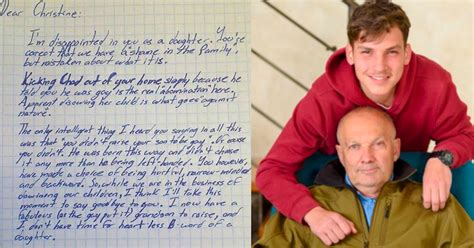 Dear Christine:
I'm disappointed in you as a daughter. You're
correct that we have a shame in the family,
but mistaken about what it is.
Kicking Chad out of your home simply because he
told you he was gay is the real abomination here.
A parent disowning her child is what goes against
nature.
The only intelligent thing I heard you saying in all this
was that you didn't raise your son to be gay. Of course
you didn't. He was born this way and didn't choose
it any more than he being left-handed. You however,
have made a choice of being hurtful, narrow-minded
and backward. So, while we are in the business of
disowning our children, I think I'll take this
moment to say goodbye to you. I now have a
fabulous (as the gay put it) grandson to raise, and
I don't have time for heart less B-word of a
daughter.